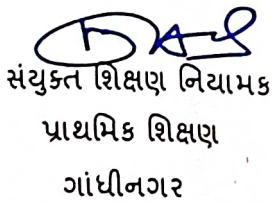 સંયુક્ત શિક્ષણ નિયામક
પ્રાથમિક શિક્ષણ
ગાંધીનગર